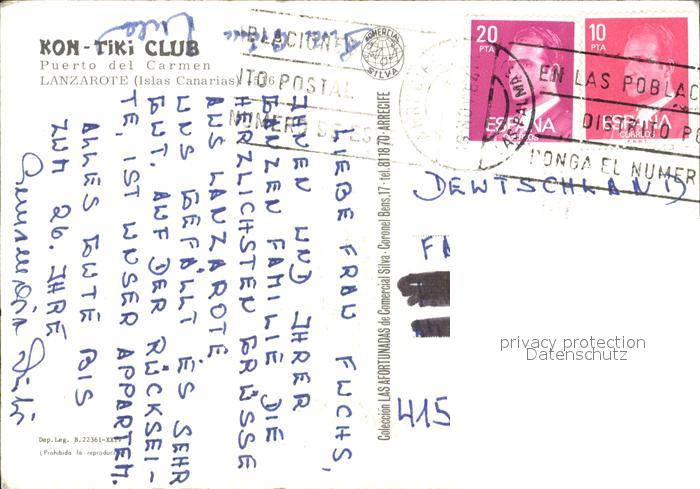 KON-TIKI CLUB
Puerto del Carmen
LANZAROTE (Islas Canarias)
LIEBE FRAU FUCHS,
IHNEN UND IHRER
GANZEN FAMILIE DIE
HERZLICHSTEN GRÜSSE
AUS LANZAROTE
UNS GEFÄLLT ES SEHR
GUT. AUF DER RÜCKSEI-
TE, IST UNSER APPARTEM.
ALLES GUTE BIS
ZUM 26. IHRE
Dep. Leg. B.22361-XX
(Prohibida la reproduc
Colección LAS AFORTUNADAS de Comercial Silva · Coronel Bens, 17 · tel. 811870 · ARRECIFE
COMERCIAL
SILVA
BLACIONE
ITO POSTAL
NUMERO DE ES
20
PTA
ESPAÑA
CORREOS
10
PTA
ESPAÑA
CORREOS
EN LAS POBLAC
DISTRITO P
PONGA EL NUMER
DEUTSCHLAND
415
privacy protection
Datenschutz